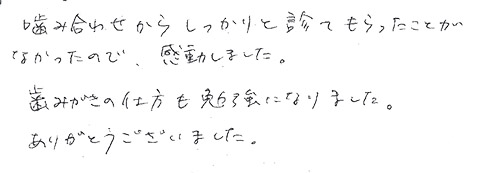 噛み合わせからしっかりと診てもらったことが
なかったので、感動しました。
歯みがきの仕方も勉強になりました。
ありがとうございました。